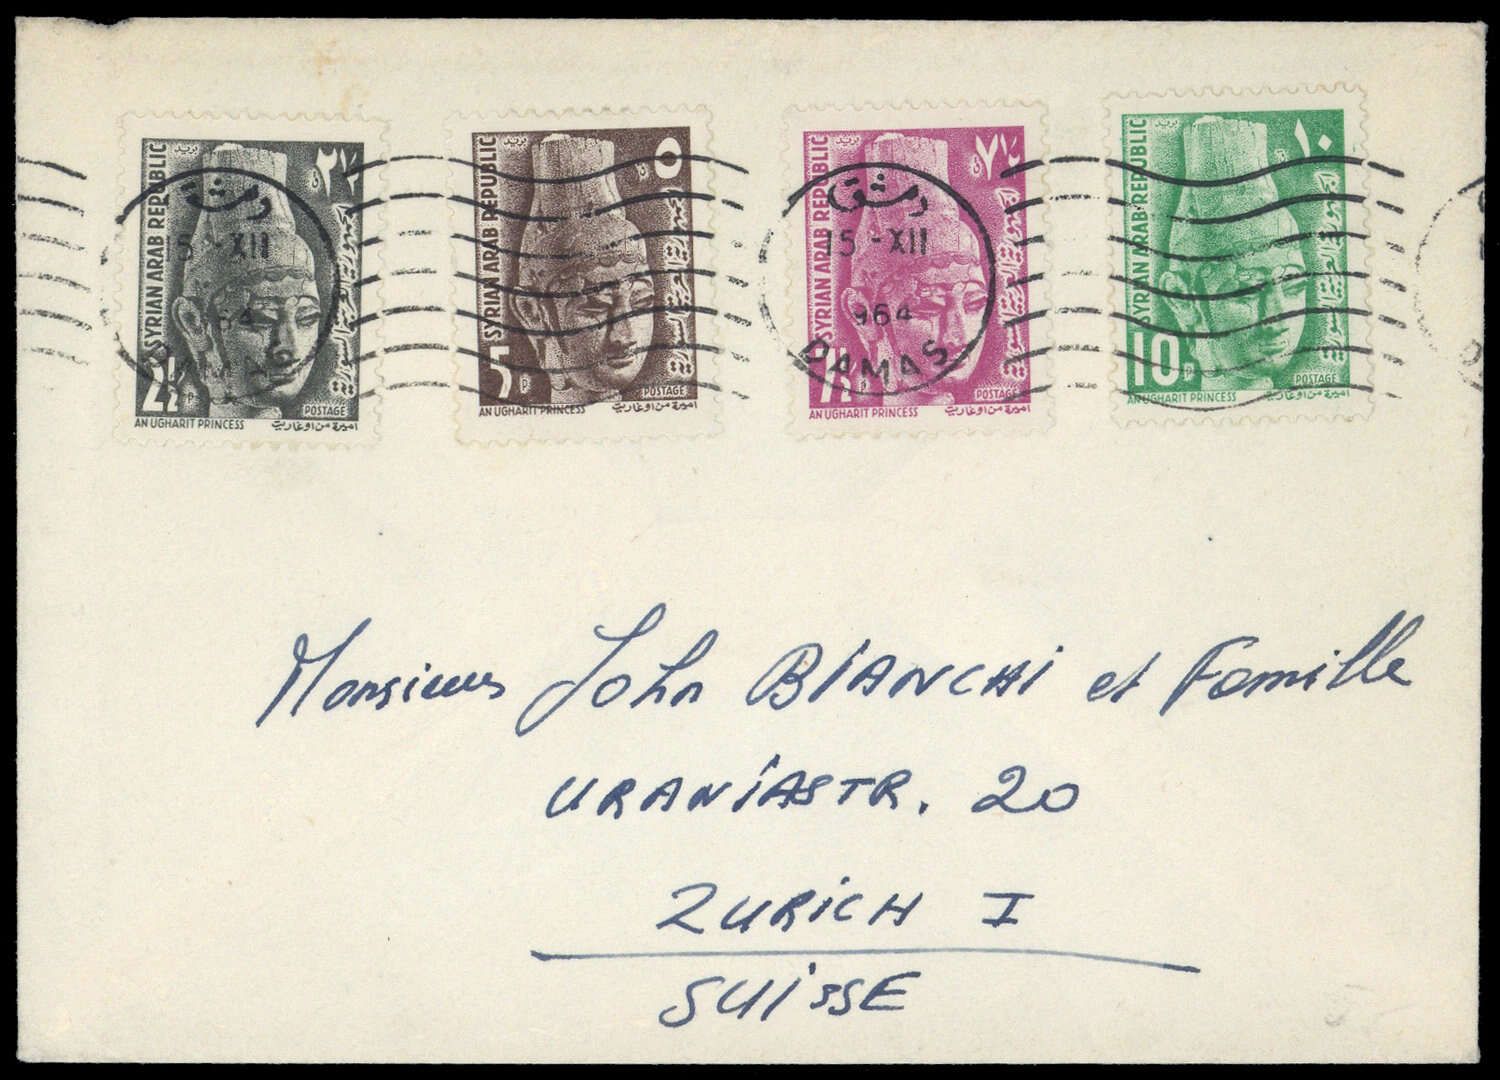 بريد
٢½ ق
SYRIAN ARAB REPUBLIC
الجمهورية العربية السورية
2½ P
POSTAGE
AN UGHARIT PRINCESS
اميرة من اوغاريت
دمشق
15 -XII
964
DAMAS
بريد
٥ ق
SYRIAN ARAB REPUBLIC
الجمهورية العربية السورية
5 P
POSTAGE
AN UGHARIT PRINCESS
اميرة من اوغاريت
بريد
٧½ ق
SYRIAN ARAB REPUBLIC
الجمهورية العربية السورية
7½ P
POSTAGE
AN UGHARIT PRINCESS
اميرة من اوغاريت
دمشق
15 -XII
964
DAMAS
بريد
١٠ ق
SYRIAN ARAB REPUBLIC
الجمهورية العربية السورية
10 P
POSTAGE
AN UGHARIT PRINCESS
اميرة من اوغاريت
Monsieur John BIANCHI et Famille
URANIASTR. 20
ZURICH I
SUISSE